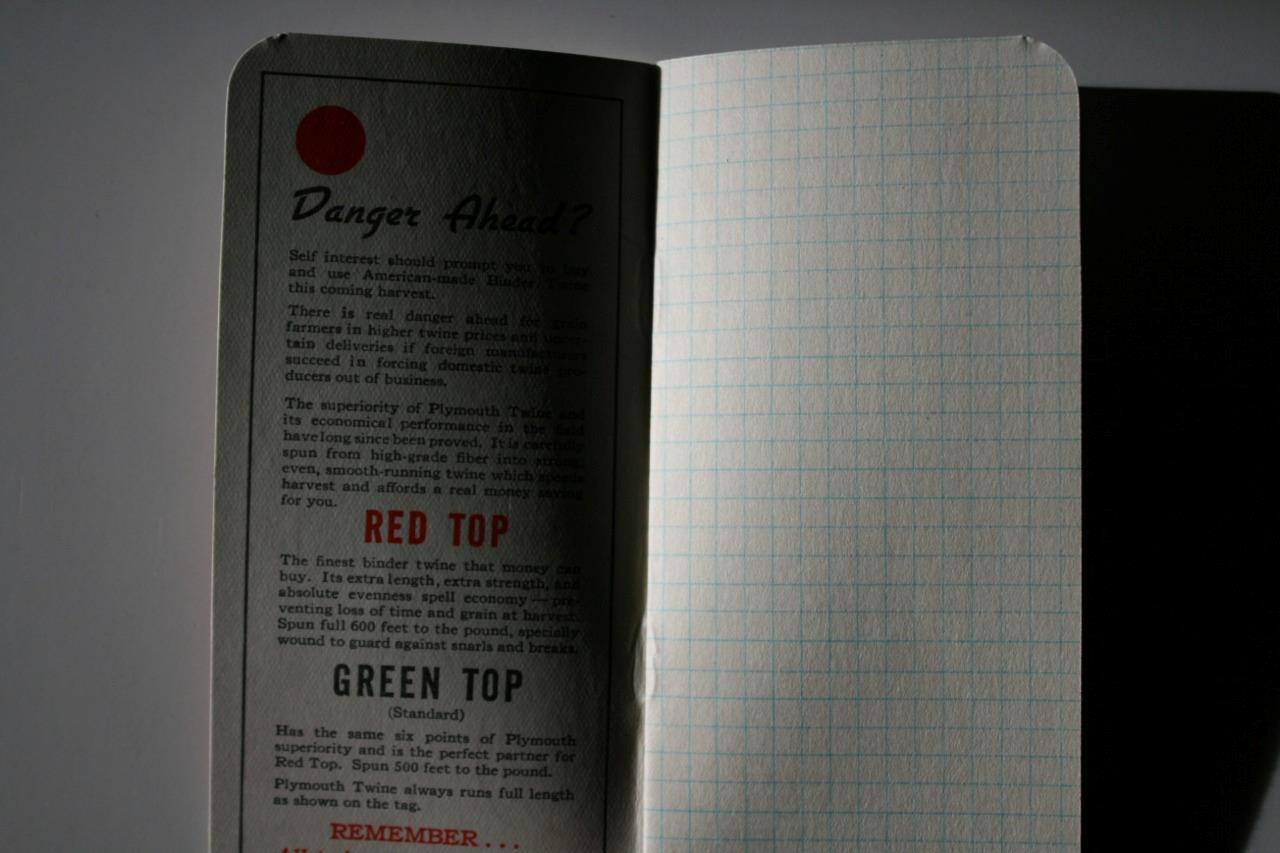 Danger Ahead?
Self interest should prompt you to buy
and use American-made Binder Twine
this coming harvest.
There is real danger ahead for grain
farmers in higher twine prices and uncer-
tain deliveries if foreign manufacturers
succeed in forcing domestic twine pro-
ducers out of business.
The superiority of Plymouth Twine and
its economical performance in the field
have long since been proved. It is carefully
spun from high-grade fiber into strong,
even, smooth-running twine which speeds
harvest and affords a real money saving
for you.
RED TOP
The finest binder twine that money can
buy. Its extra length, extra strength, and
absolute evenness spell economy — pre-
venting loss of time and grain at harvest.
Spun full 600 feet to the pound, specially
wound to guard against snarls and breaks.
GREEN TOP
(Standard)
Has the same six points of Plymouth
superiority and is the perfect partner for
Red Top. Spun 500 feet to the pound.
Plymouth Twine always runs full length
as shown on the tag.
REMEMBER . . .